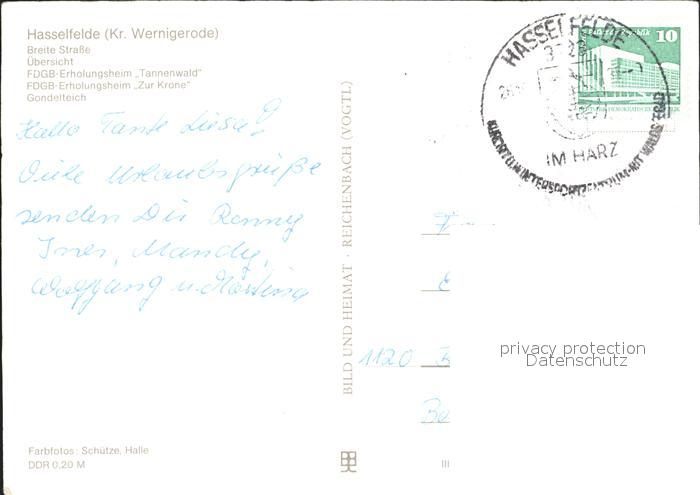 Hasselfelde (Kr. Wernigerode)
Breite Straße
Übersicht
FDGB-Erholungsheim „Tannenwald"
FDGB-Erholungsheim „Zur Krone"
Gondelteich
Hallo Tante Luisa!
Viele Urlaubsgrüße
senden Dir Ronny
Ines, Mandy,
Wolfgang u. Martina
Farbfotos: Schütze, Halle
DDR 0,20 M
BILD UND HEIMAT · REICHENBACH (VOGTL)
HASSELFELDE
IM HARZ
10
1120
III
privacy protection
Datenschutz